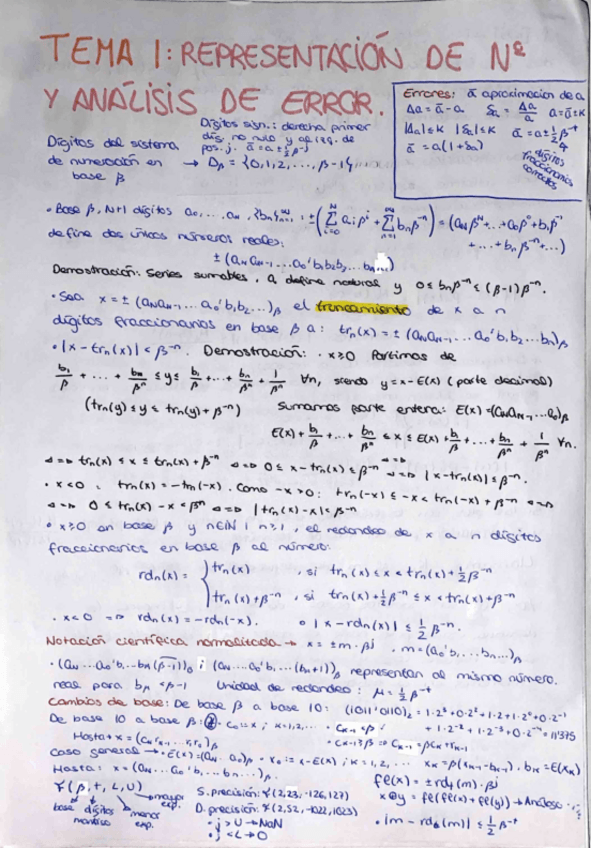 TEMA 1: REPRESENTACIÓN DE Nº
Y ANÁLISIS DE ERROR.
Errores: ā aproximacion de a
Δa = ā - a   δa = Δa/a   a = ā ± k
|Δa| ≤ k   |δa| ≤ k   ā = a ± ½ β⁻ᵗ
ā = a(1 + δa)
dígitos fraccionarios correctos
Dígitos sign.: derecha primer
díg. no nulo y al izq. de
pos. j. ā = a ± ½ β⁻ʲ
Dígitos del sistema
de numeración en → Dβ = {0, 1, 2, ..., β-1}
base β
• Base β, N+1 dígitos a₀, ..., aN, {bn} : ± (Σ aᵢβⁱ + Σ bnβ⁻ⁿ) = (aNβᴺ + ... + a₀β⁰ + b₁β⁻¹
+ ... + bnβ⁻ⁿ + ...)
define dos únicos números reales:
± (aN aN-1 ... a₀'b₁b₂b₃ ... bn...)
Demostración: Series sumables, a define natural y 0 ≤ bnβ⁻ⁿ ≤ (β-1)β⁻ⁿ.
• Sea x = ± (aN aN-1 ... a₀'b₁b₂...)β el truncamiento de x a n
dígitos fraccionarios en base β a: trn(x) = ± (aN aN-1 ... a₀'b₁b₂...bn)β
• |x - trn(x)| ≤ β⁻ⁿ. Demostración: • x ≥ 0 Partimos de
b₁/β + ... + bn/βⁿ ≤ y ≤ b₁/β + ... + bn/βⁿ + 1/βⁿ ∀n, siendo y = x - E(x) (parte decimal)
(trn(y) ≤ y ≤ trn(y) + β⁻ⁿ) Sumamos parte entera: E(x) = (aN aN-1 ... a₀)β
E(x) + b₁/β + ... + bn/βⁿ ≤ x ≤ E(x) + b₁/β + ... + bn/βⁿ + 1/βⁿ ∀n.
⇔ trn(x) ≤ x ≤ trn(x) + β⁻ⁿ ⇔ 0 ≤ x - trn(x) ≤ β⁻ⁿ ⇔ |x - trn(x)| ≤ β⁻ⁿ.
• x < 0 : trn(x) = -trn(-x). Como -x > 0: trn(-x) ≤ -x < trn(-x) + β⁻ⁿ ⇔
⇔ 0 ≤ trn(x) - x < βⁿ ⇔ |trn(x) - x| < β⁻ⁿ
• x ≥ 0 en base β y n∈ℕ | n ≥ 1, el redondeo de x a n dígitos
fraccionarios en base β al número:
rdn(x) = { trn(x) , si trn(x) ≤ x < trn(x) + ½β⁻ⁿ
trn(x) + β⁻ⁿ , si trn(x) + ½β⁻ⁿ ≤ x < trn(x) + β⁻ⁿ
• x < 0 ⇒ rdn(x) = -rdn(-x). • |x - rdn(x)| ≤ ½ β⁻ⁿ.
Notación científica normalizada → x = ± m · βʲ , m = (a₀'b₁...bn...)β
• (aN...a₀'b₁...bn(β-1))β ; (aN...a₀'b₁...(bn+1))β representan al mismo número.
real para bn < β-1 Unidad de redondeo: μ = ½ β⁻ᵗ
Cambios de base: De base β a base 10: (1011'0110)₂ = 1·2³ + 0·2² + 1·2 + 1·2⁰ + 0·2⁻¹
+ 1·2⁻² + 1·2⁻³ + 0·2⁻⁴ = 11'375
De base 10 a base β: • c₀ = x ; k = 1, 2, ... • ck-1 < β
• ck-1 ≥ β ⇒ ck-1 = βck + rk-1
Hasta x = (ck rk-1 ... r₁ r₀)β
Caso general → • E(x) = (aN...a₀)β • x₀ = x - E(x) ; k = 1, 2, ... xk = β(xk-1 - bk-1), bk = E(xk)
Hasta: x = (aN...a₀'b₁...bn...)β
F(β, t, L, U)
base   dígitos mantisa   menor exp.   mayor exp.
S. precisión: F(2, 23, -126, 127)
D. precisión: F(2, 52, -1022, 1023)
• j > U → NaN
• j < L → 0
fl(x) = ± rdt(m) · βʲ
x⊕y = fl(fl(x) + fl(y)) → Análoso
• |m - rdt(m)| ≤ ½ β⁻ᵗ